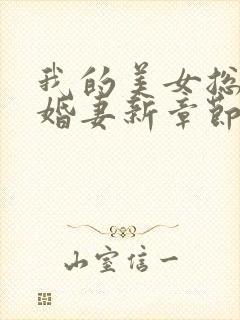 我的美女总
婚妻新章节
山室信一